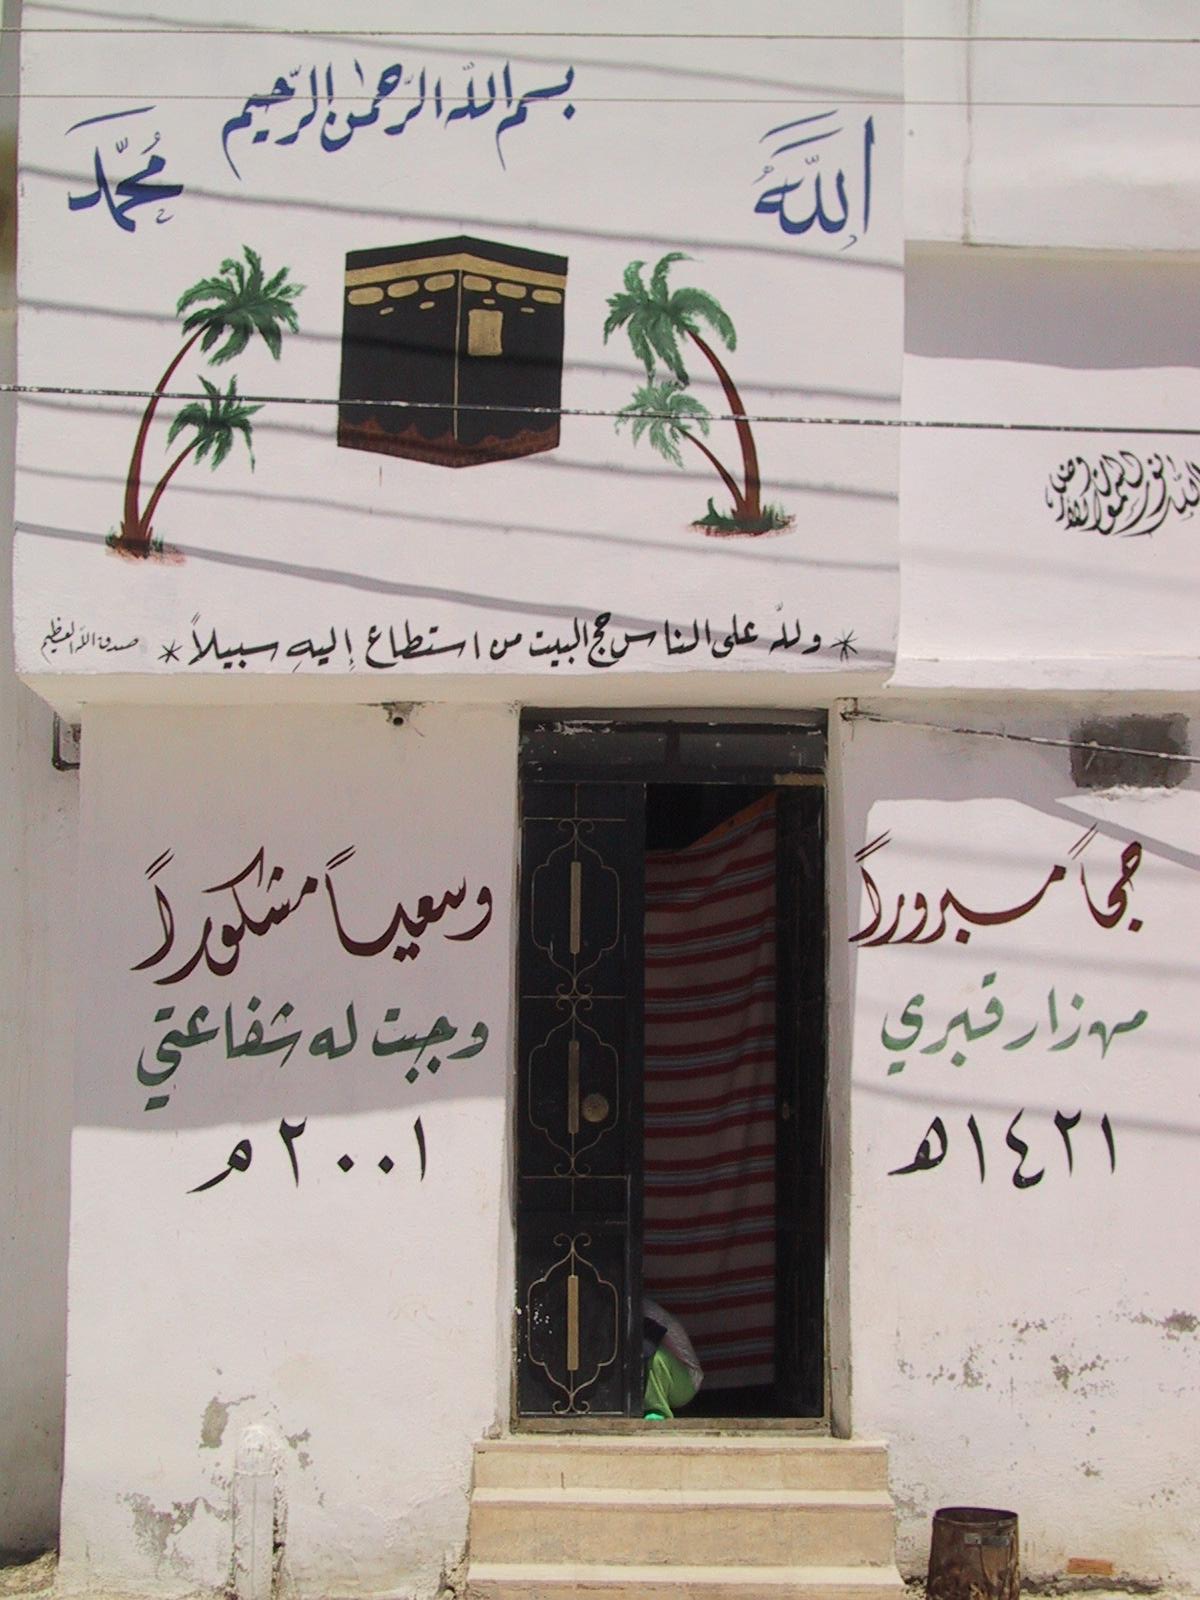 بسم الله الرحمن الرحيم
الله
محمد
* ولله على الناس حج البيت من استطاع إليه سبيلاً * صدق الله العظيم
الله نور السموات والأرض
حجاً مبروراً وسعياً مشكوراً
من زار قبري وجبت له شفاعتي
١٤٢١هـ ٢٠٠١م